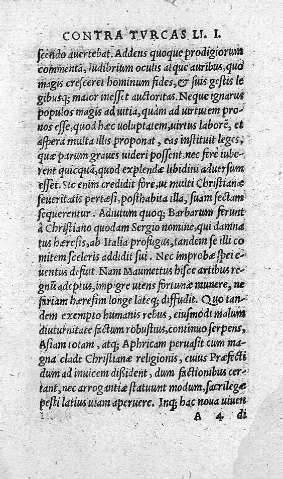 CONTRA TVRCAS LI. I.
scendo auertebat. Addens quoque prodigiorum
commenta, ludibrium oculis atque auribus, quo
magis cresceret hominum fides, & suis gestis le
gibusq; maior inesset auctoritas. Neque ignarus
populos magis ad uitia, quàm ad uirtutem pro
nos esse, quòd hæc uoluptatem, uirtus laborē, et
aspera multa illis proponat, eas instituit leges,
quæ parum graues uideri possent, nec ferè iube
rent quicquā, quod explendæ libidini aduersum
esset. Sic enim credidit fore, ut multi Christianæ
seueritatis pertæsi, posthabita illa, suam sectam
sequerentur. Adiutum quoq; Barbarum ferunt
à Christiano quodam Sergio nomine, qui damna
tus hæresis, ab Italia profugus, tandem se illi co
mitem sceleris addidit sui. Nec improbæ spei e
uentus defuit. Nam Maumettus hisce artibus re
gnū adeptus, impigre utens fortunæ munere, ne
fariam hæresim longe lateq; diffudit. Quo tan
dem exempto humanis rebus, eiusmodi malum
diuturnitate factum robustius, continuo serpens,
Asiam totam, atq; Aphricam peruasit cum ma
gna clade Christianæ religionis, cuius Præfecti
dum ad inuicem dissident, dum factionibus cer
tant, nec arrogantiæ statuunt modum, sacrilegæ
pesti latius uiam aperuere. Inq; hæc noua uiuen
A 4 di